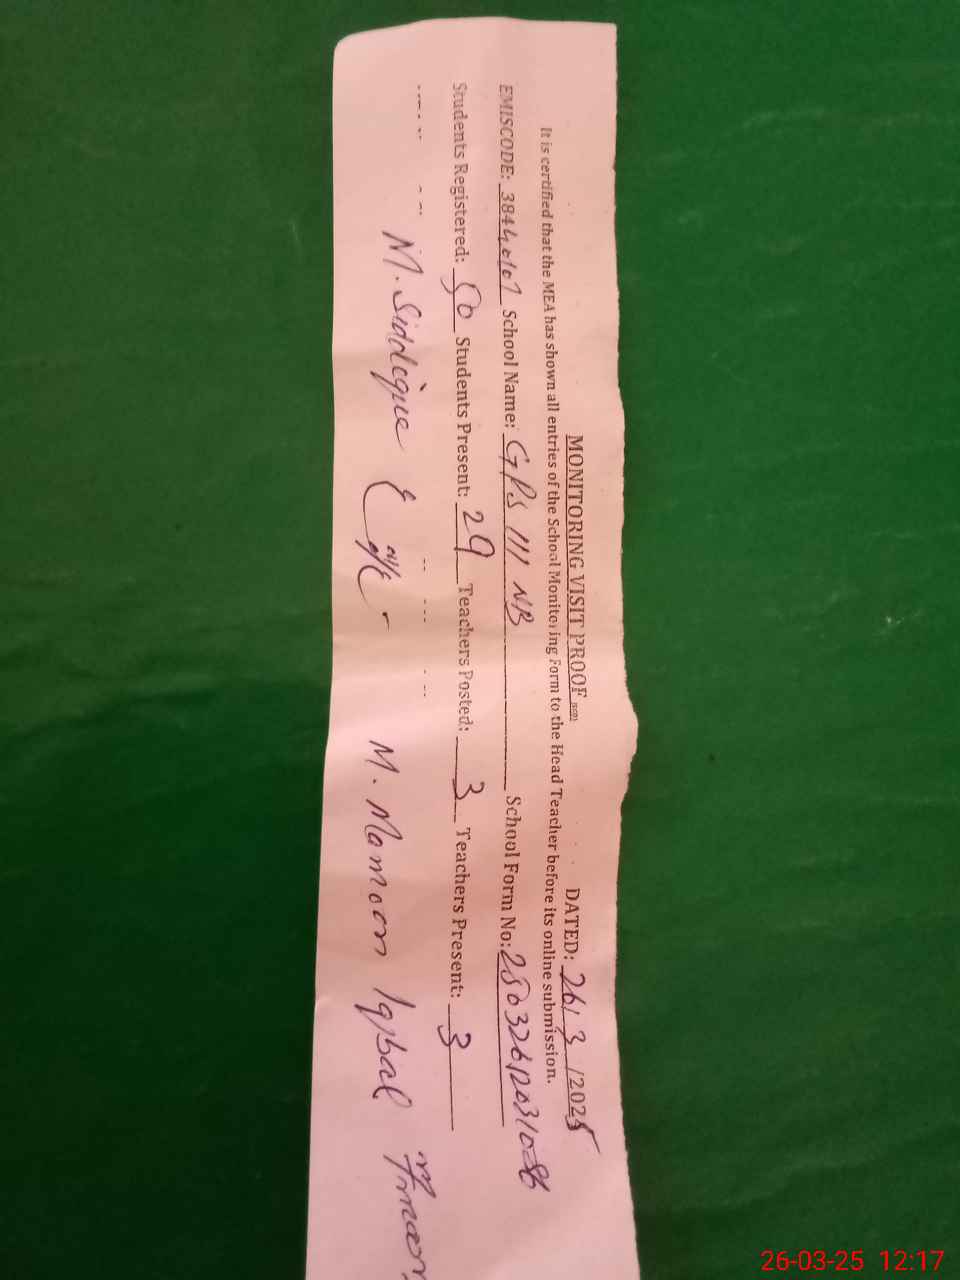 MONITORING VISIT PROOF DATED: 26/3/2025
It is certified that the MEA has shown all entries of the School Monitoring Form to the Head Teacher before its online submission.
EMISCODE: 38440107 School Name: GPS 111 NB School Form No: 250326120310
Students Registered: 50 Students Present: 29 Teachers Posted: 3 Teachers Present: 3
M. Siddique M. Mamoon Iqbal
26-03-25 12:17